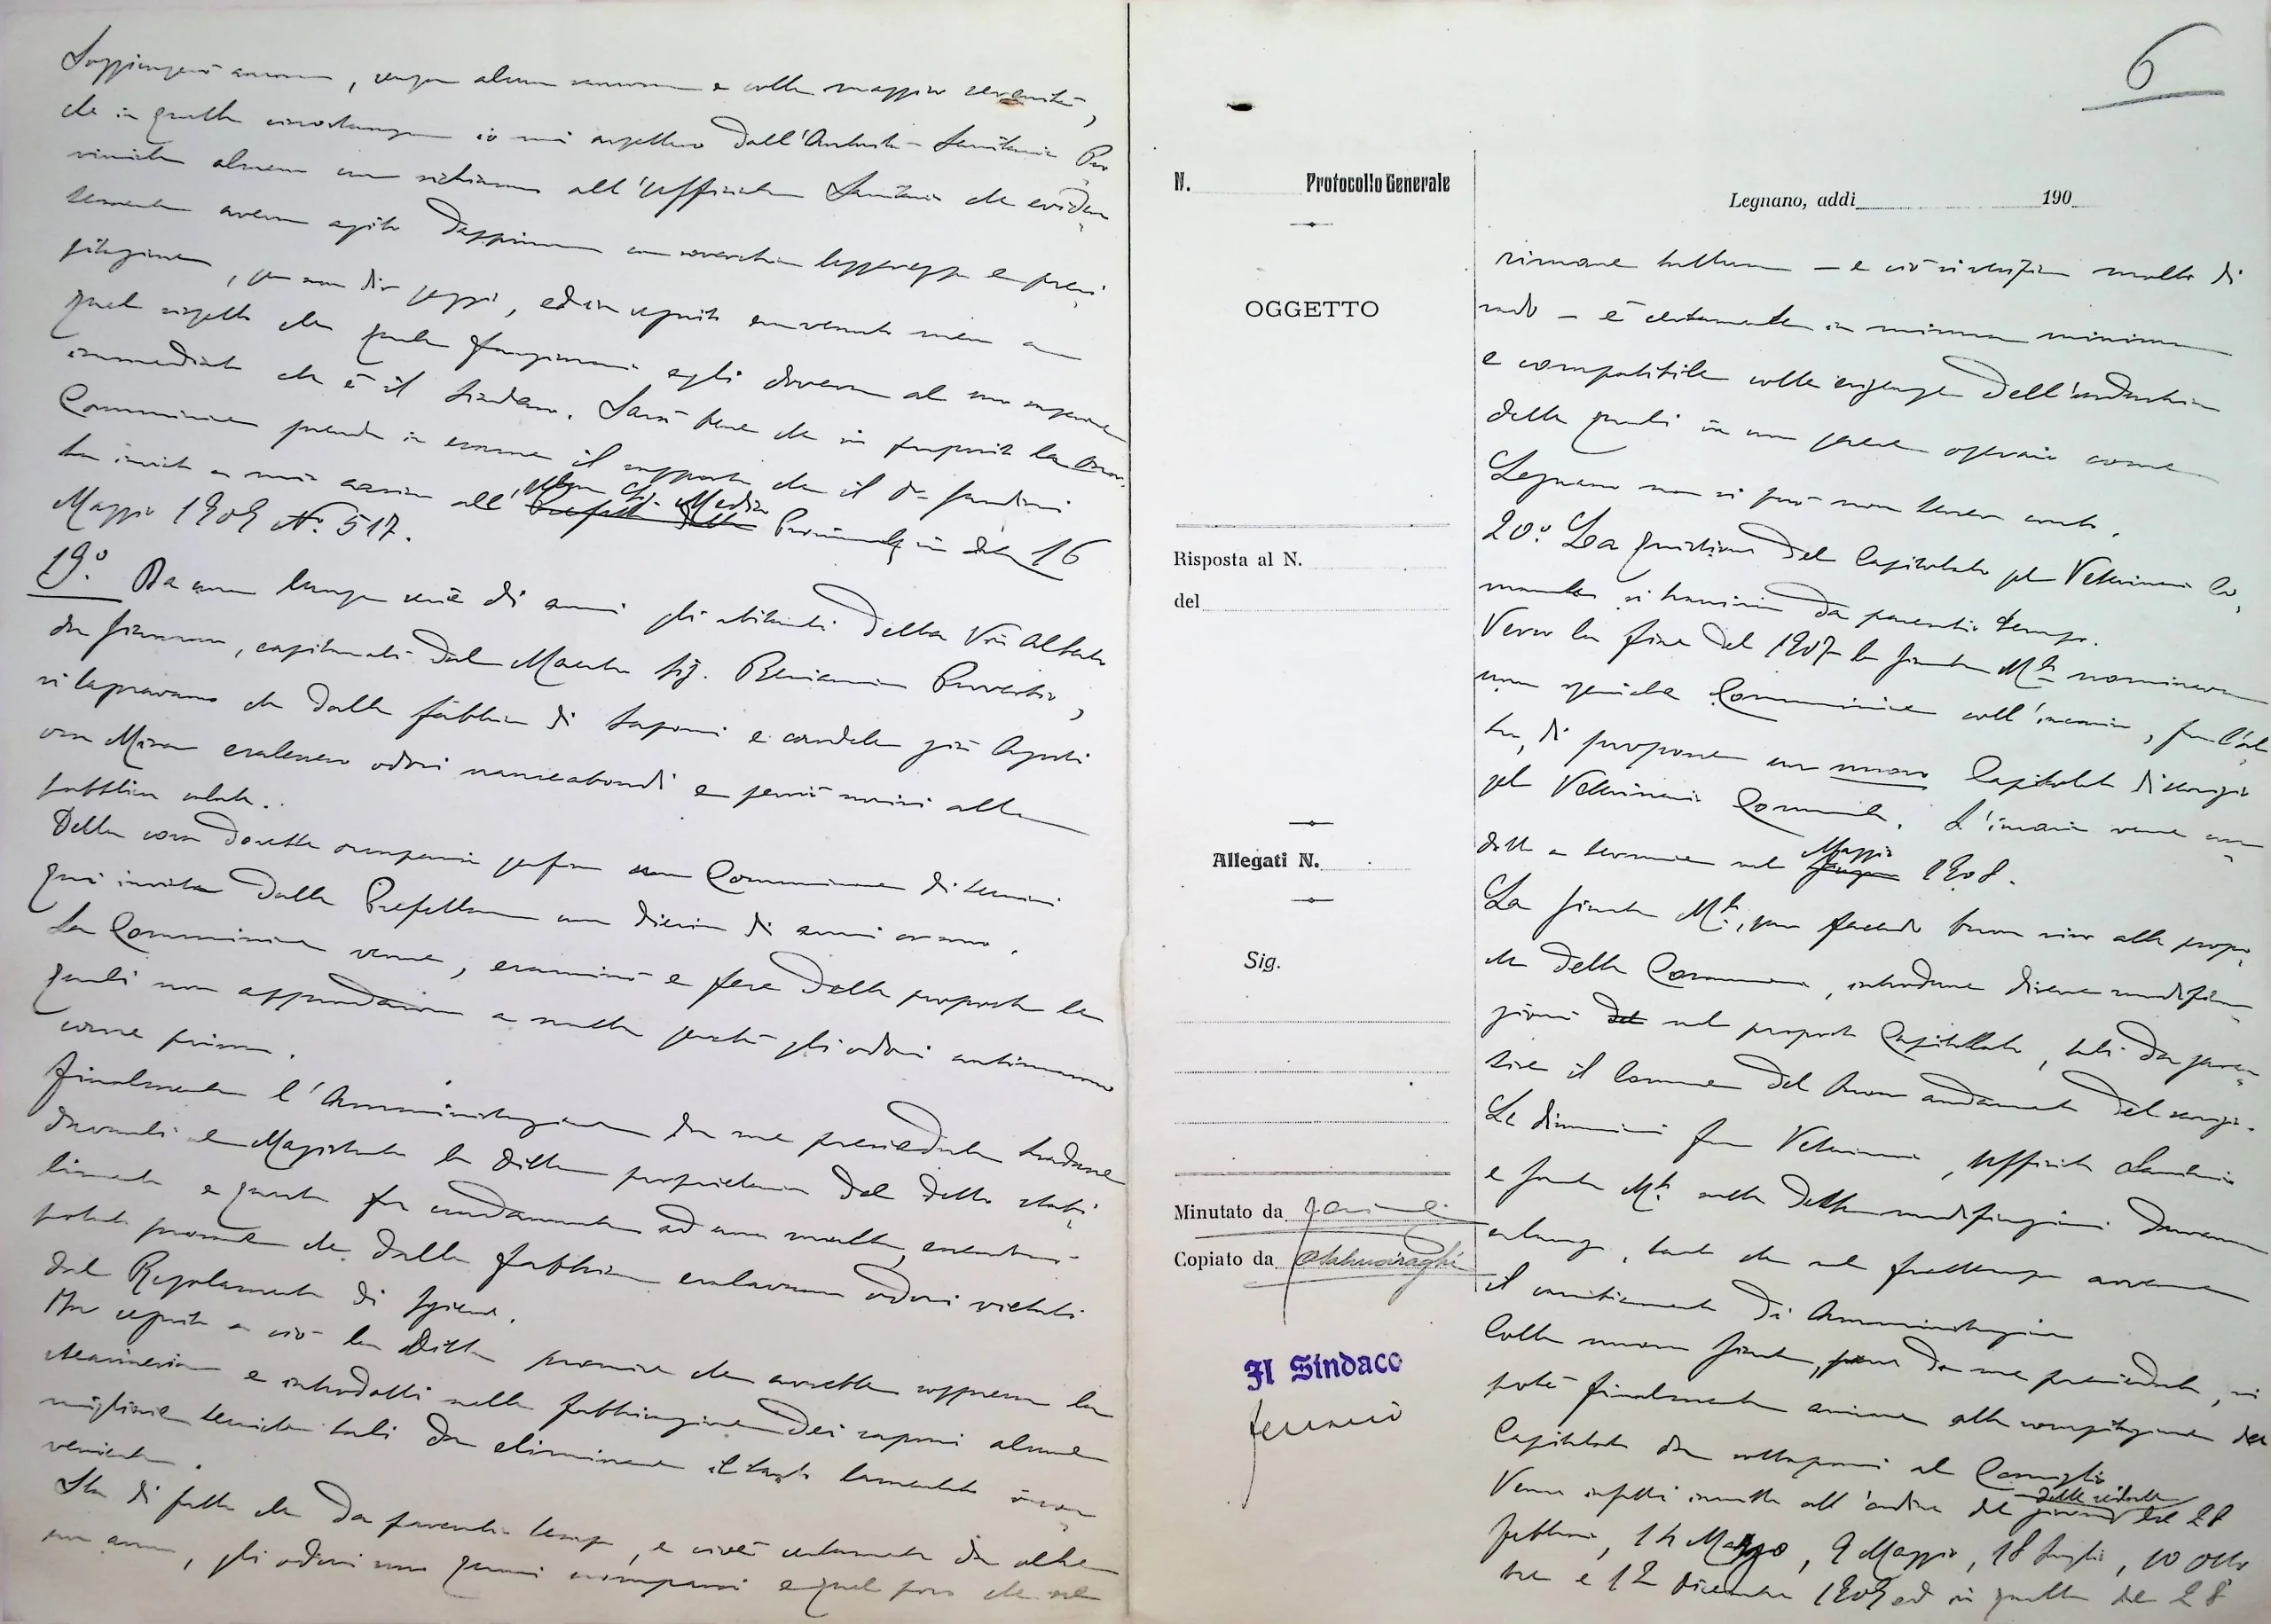 Soggiungerò ancora, senza alcun rancore e colla maggior serenità,
che in quella circostanza io mi aspettavo dall'Autorità Sanitaria Pro
vinciale almeno un richiamo all'Ufficiale Sanitario che eviden
temente aveva agito dapprima con soverchia leggerezza e preci
pitazione, per non dir peggio, ed in seguito era venuto meno a
quel rispetto che quale funzionario egli doveva al suo superiore
immediato che è il Sindaco. Sarà bene che in proposito la Onor.
Commissione prenda in esame il rapporto che il Dr.
ha inviato a mio carico all' Medico Provinciale in data 16
Maggio 1909 N. 517.
19º Da una lunga serie di anni gli abitanti della Via Alberto
da Giussano, capitanati dal Maestro Sig. Beniamino Proverbio,
si lagnavano che dalla fabbrica di saponi e candele già Agosti
ora Mira esalassero odori nauseabondi e perciò nocivi alla
pubblica salute.
Della cosa dovette occuparsi perfino una Commissione di tecnici
qui inviata dalla Prefettura una diecina di anni or sono.
La Commissione venne, esaminò e fece delle proposte le
quali non approdarono a nulla perché gli odori continuarono
come prima.
Finalmente l'Amministrazione da me presieduta tradusse
davanti al Magistrato la Ditta proprietaria del detto stabi
limento e questa fu condannata ad una multa, essendosi
potuto provare che dalla fabbrica esalavano odori vietati
dal Regolamento di Igiene.
In seguito a ciò la Ditta promise che avrebbe soppressa la
stearineria e introdotti nella fabbricazione dei saponi alcune
migliorie tecniche tali da eliminare il tanto lamentato incon
veniente.
Sta di fatto che da parecchio tempo, e cioè certamente da oltre
un anno, gli odori sono quasi scomparsi e quel poco che ne
6
N. Protocollo Generale
Legnano, addi 190
OGGETTO
Risposta al N.
del
Allegati N.
Sig.
Minutato da
Copiato da
Il Sindaco
rimane tuttora — e ciò si verifica molto di
rado — è certamente in misura minima
e compatibile colle esigenze dell'industria
delle quali in un paese operaio come
Legnano non si può non tener conto.
20º La quistione del Capitolato pel Veterinario Co
munale si trascina da parecchio tempo.
Verso la fine del 1907 la Giunta Mle nominava
una speciale Commissione coll'incarico, fra l'al
tro, di proporre un nuovo Capitolato di servizio
pel Veterinario Comunale. L'incarico venne con
dotto a termine nel Maggio 1908.
La Giunta Mle, pur facendo buon viso alle propo
ste della Commissione, introdusse diverse modifica
zioni nel proposto Capitolato, tali da garan
tire il Comune del buon andamento del servizio.
Le discussioni fra Veterinario, Ufficiale Sanitario
e Giunta Mle sulle dette modificazioni durarono
a lungo, tanto che nel frattempo avvenne
il cambiamento di Amministrazione
Colla nuova Giunta, da me presieduta, si
poté finalmente arrivare alla compilazione del
Capitolato da sottoporsi al Consiglio
Venne infatti inscritto all'ordine del giorno delle sedute del 28
febbraio, 14 Marzo, 9 Maggio, 18 Luglio, 10 Otto
bre e 12 Dicembre 1909 ed in quella del 28